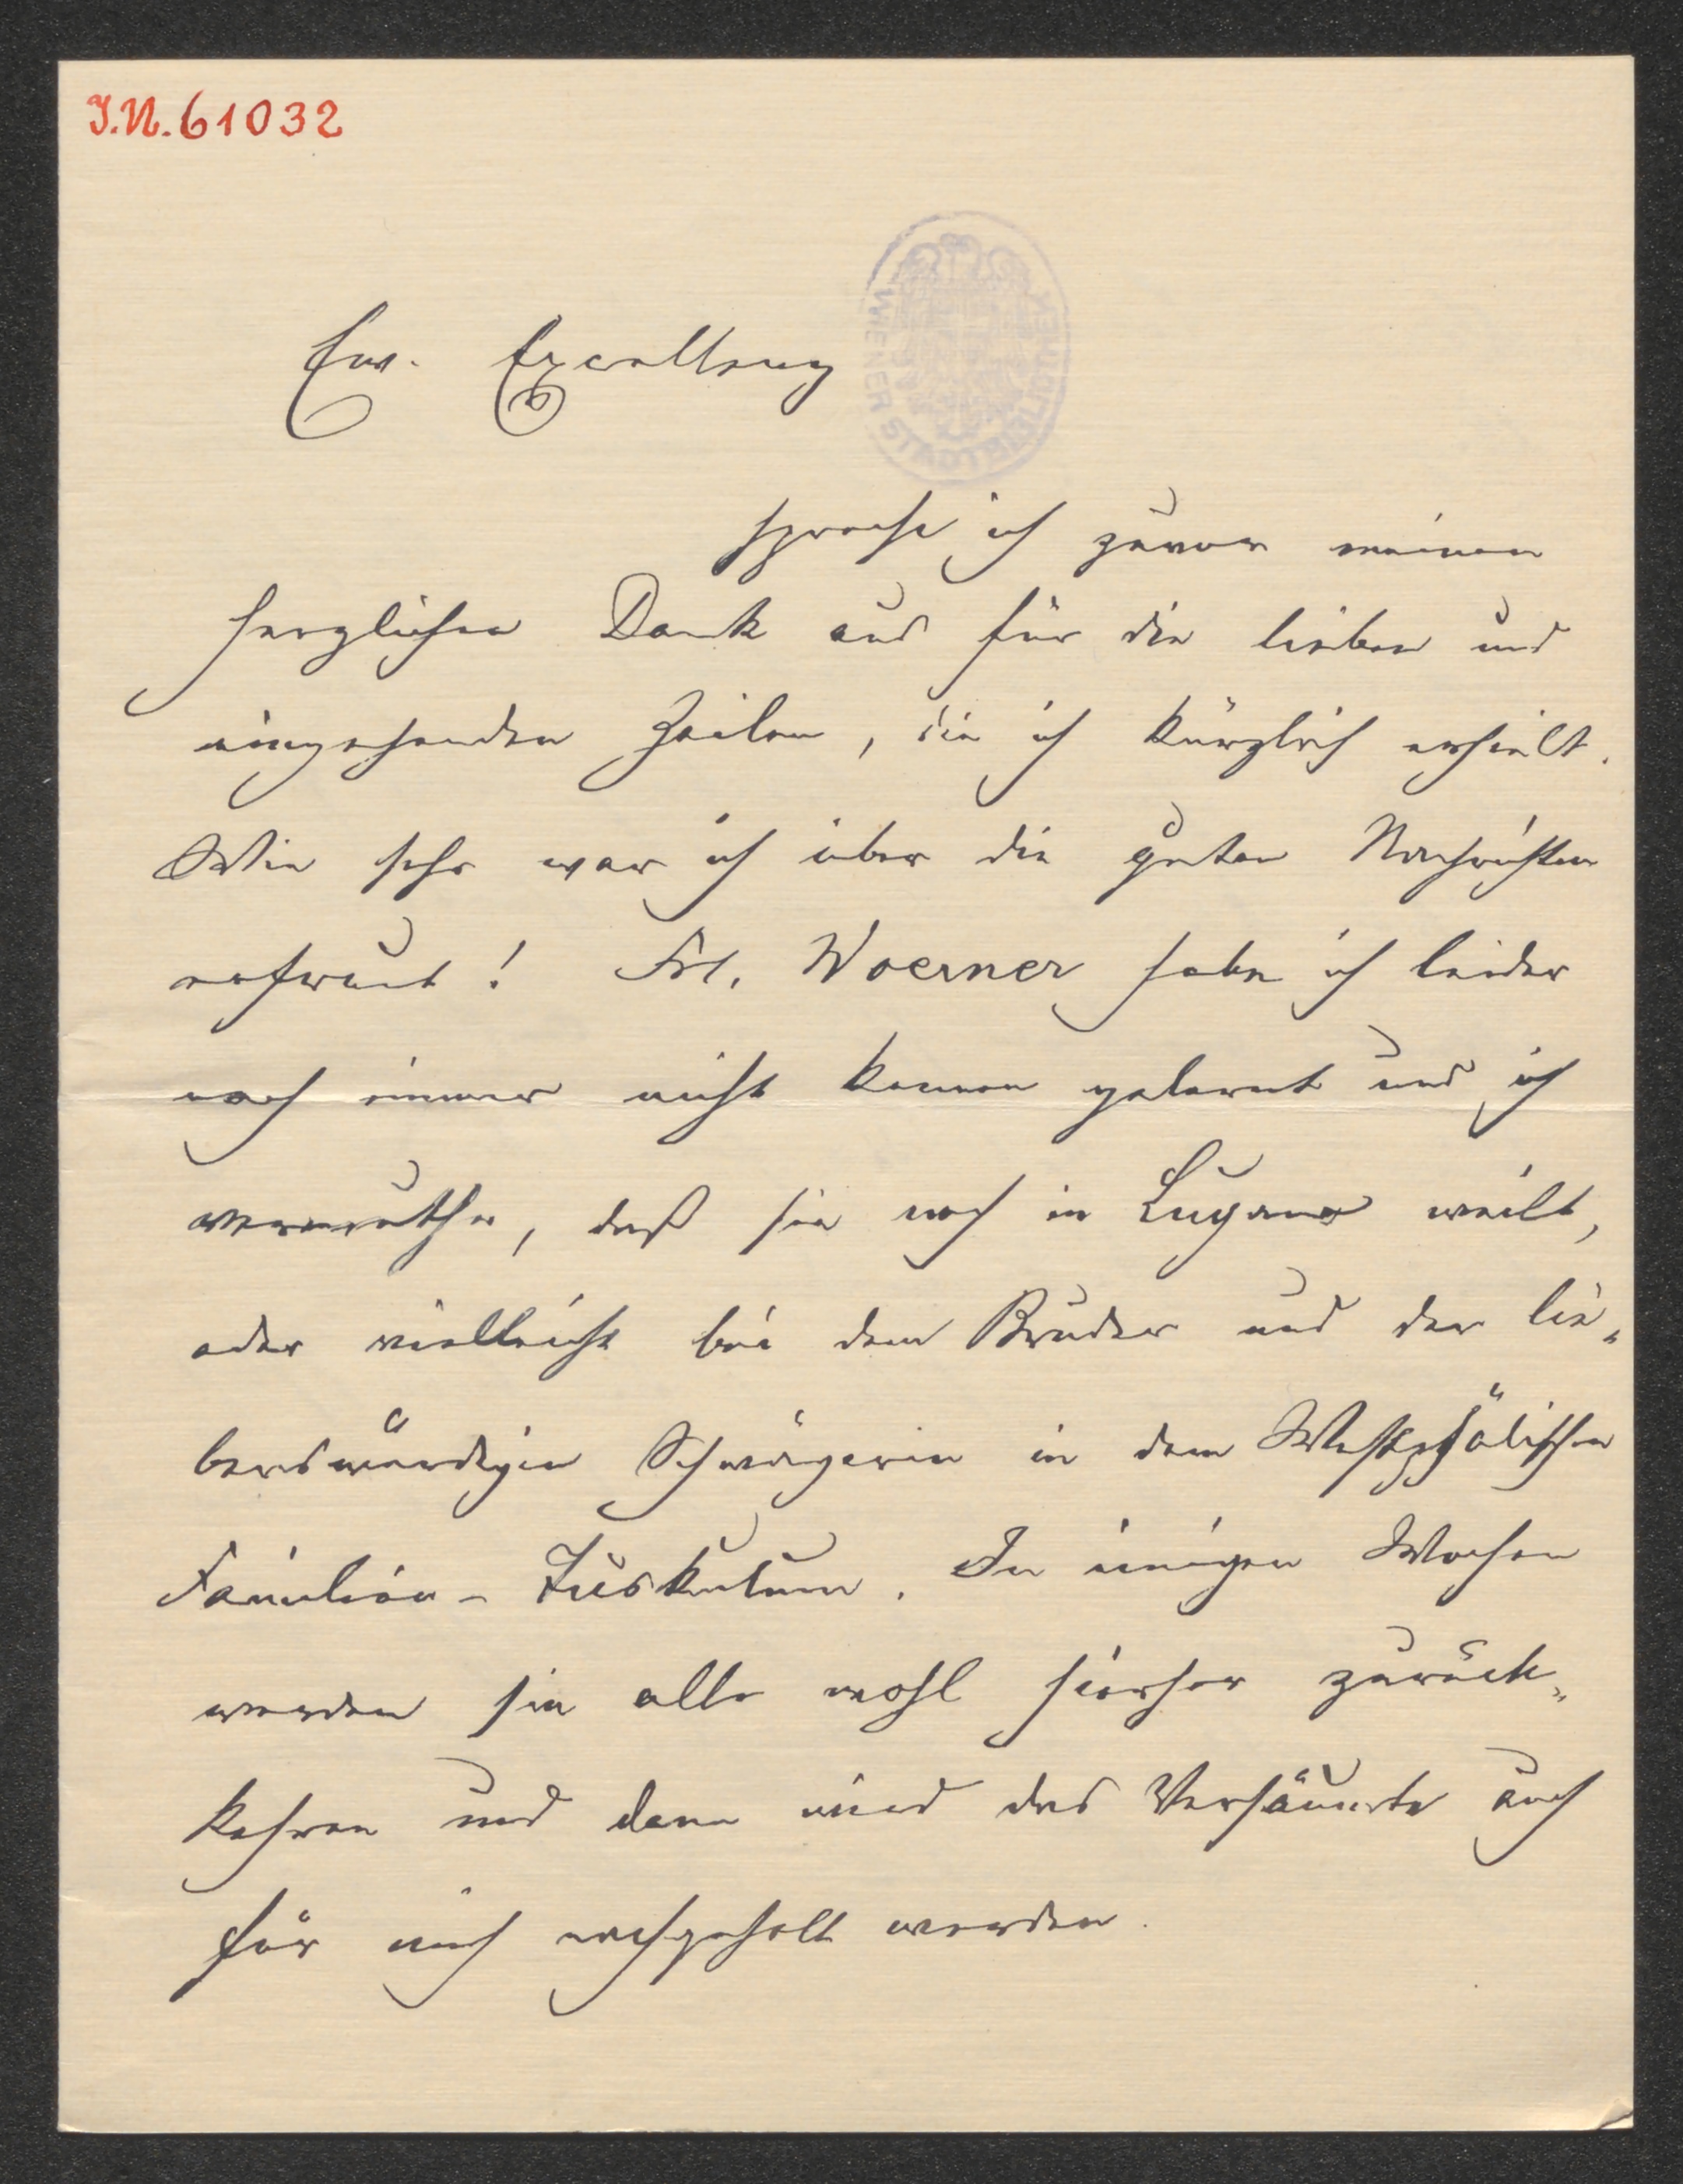 I.N. 61032
WIENER STADTBIBLIOTHEK
Ew. Excellenz
spreche ich zuvor meinen
herzlichen Dank aus für die lieben und
eingehenden Zeilen, die ich kürzlich erhielt.
Wie sehr war ich über die guten Nachrichten
erfreut! Frl. Woerner habe ich leider
noch immer nicht kennen gelernt und ich
vermuthe, daß sie noch in Lugano weilt,
oder vielleicht bei dem Bruder und der lie„
benswürdigen Schwägerin in dem Westphälischen
Familien-Tuskulum. In einigen Wochen
werden sie alle wohl hierher zurück„
kehren und dann wird das Versäumte auch
für mich nachgeholt werden.